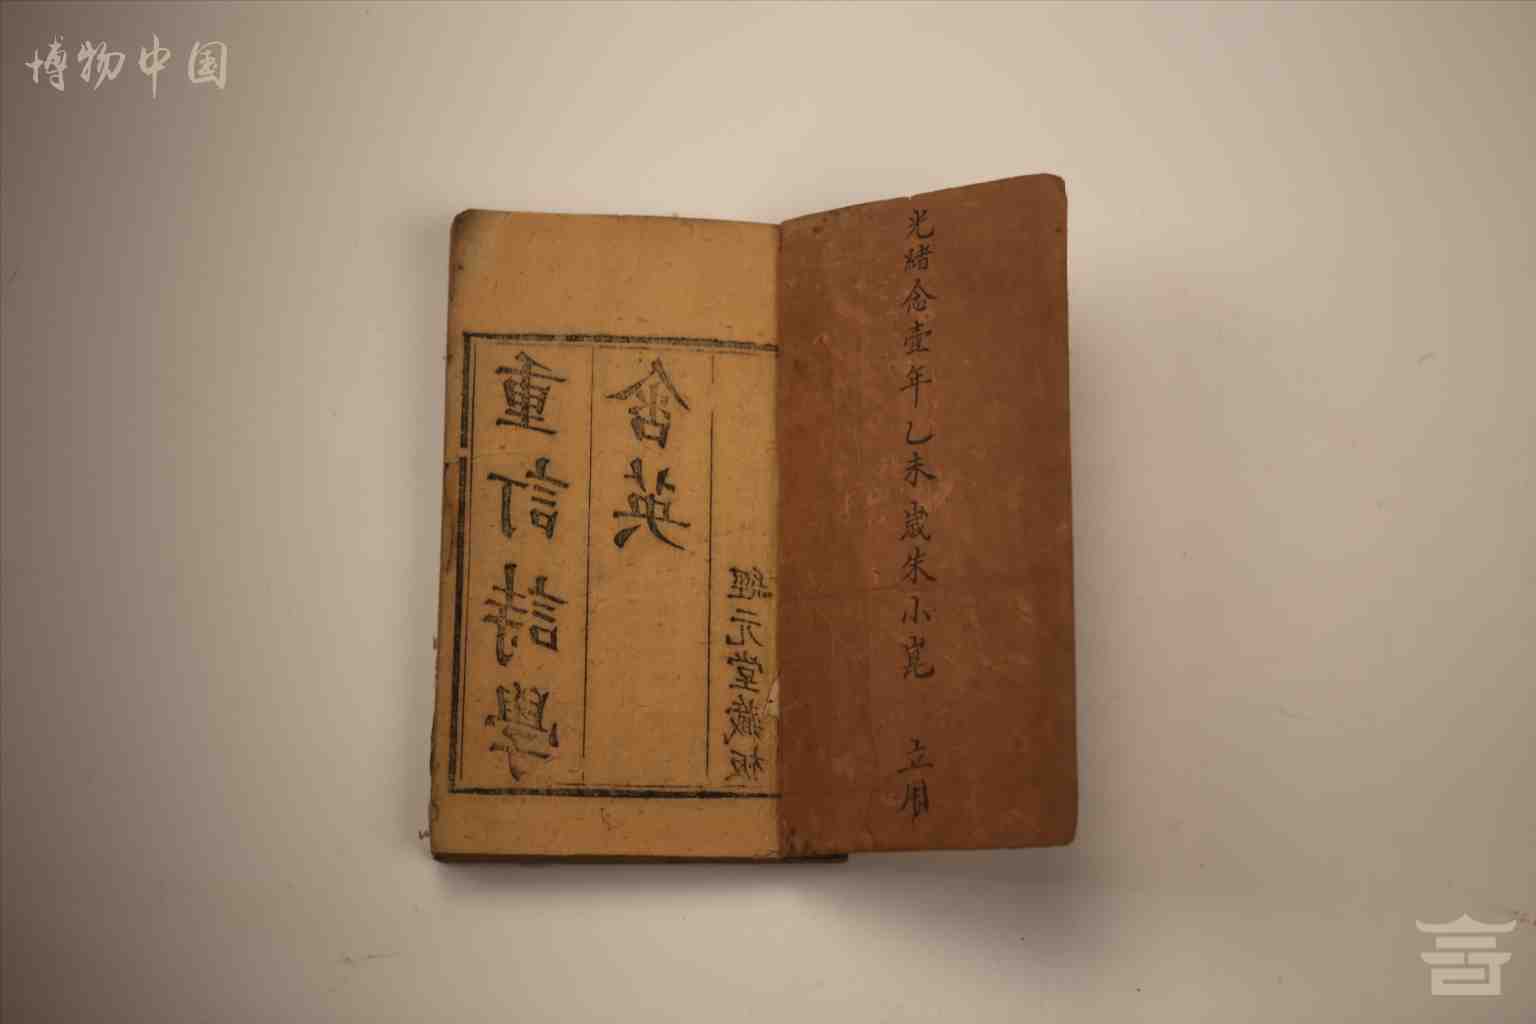 博物中国
光緒念壹年乙未歲朱小崑 立用
重訂詩學
含英
經元堂藏板